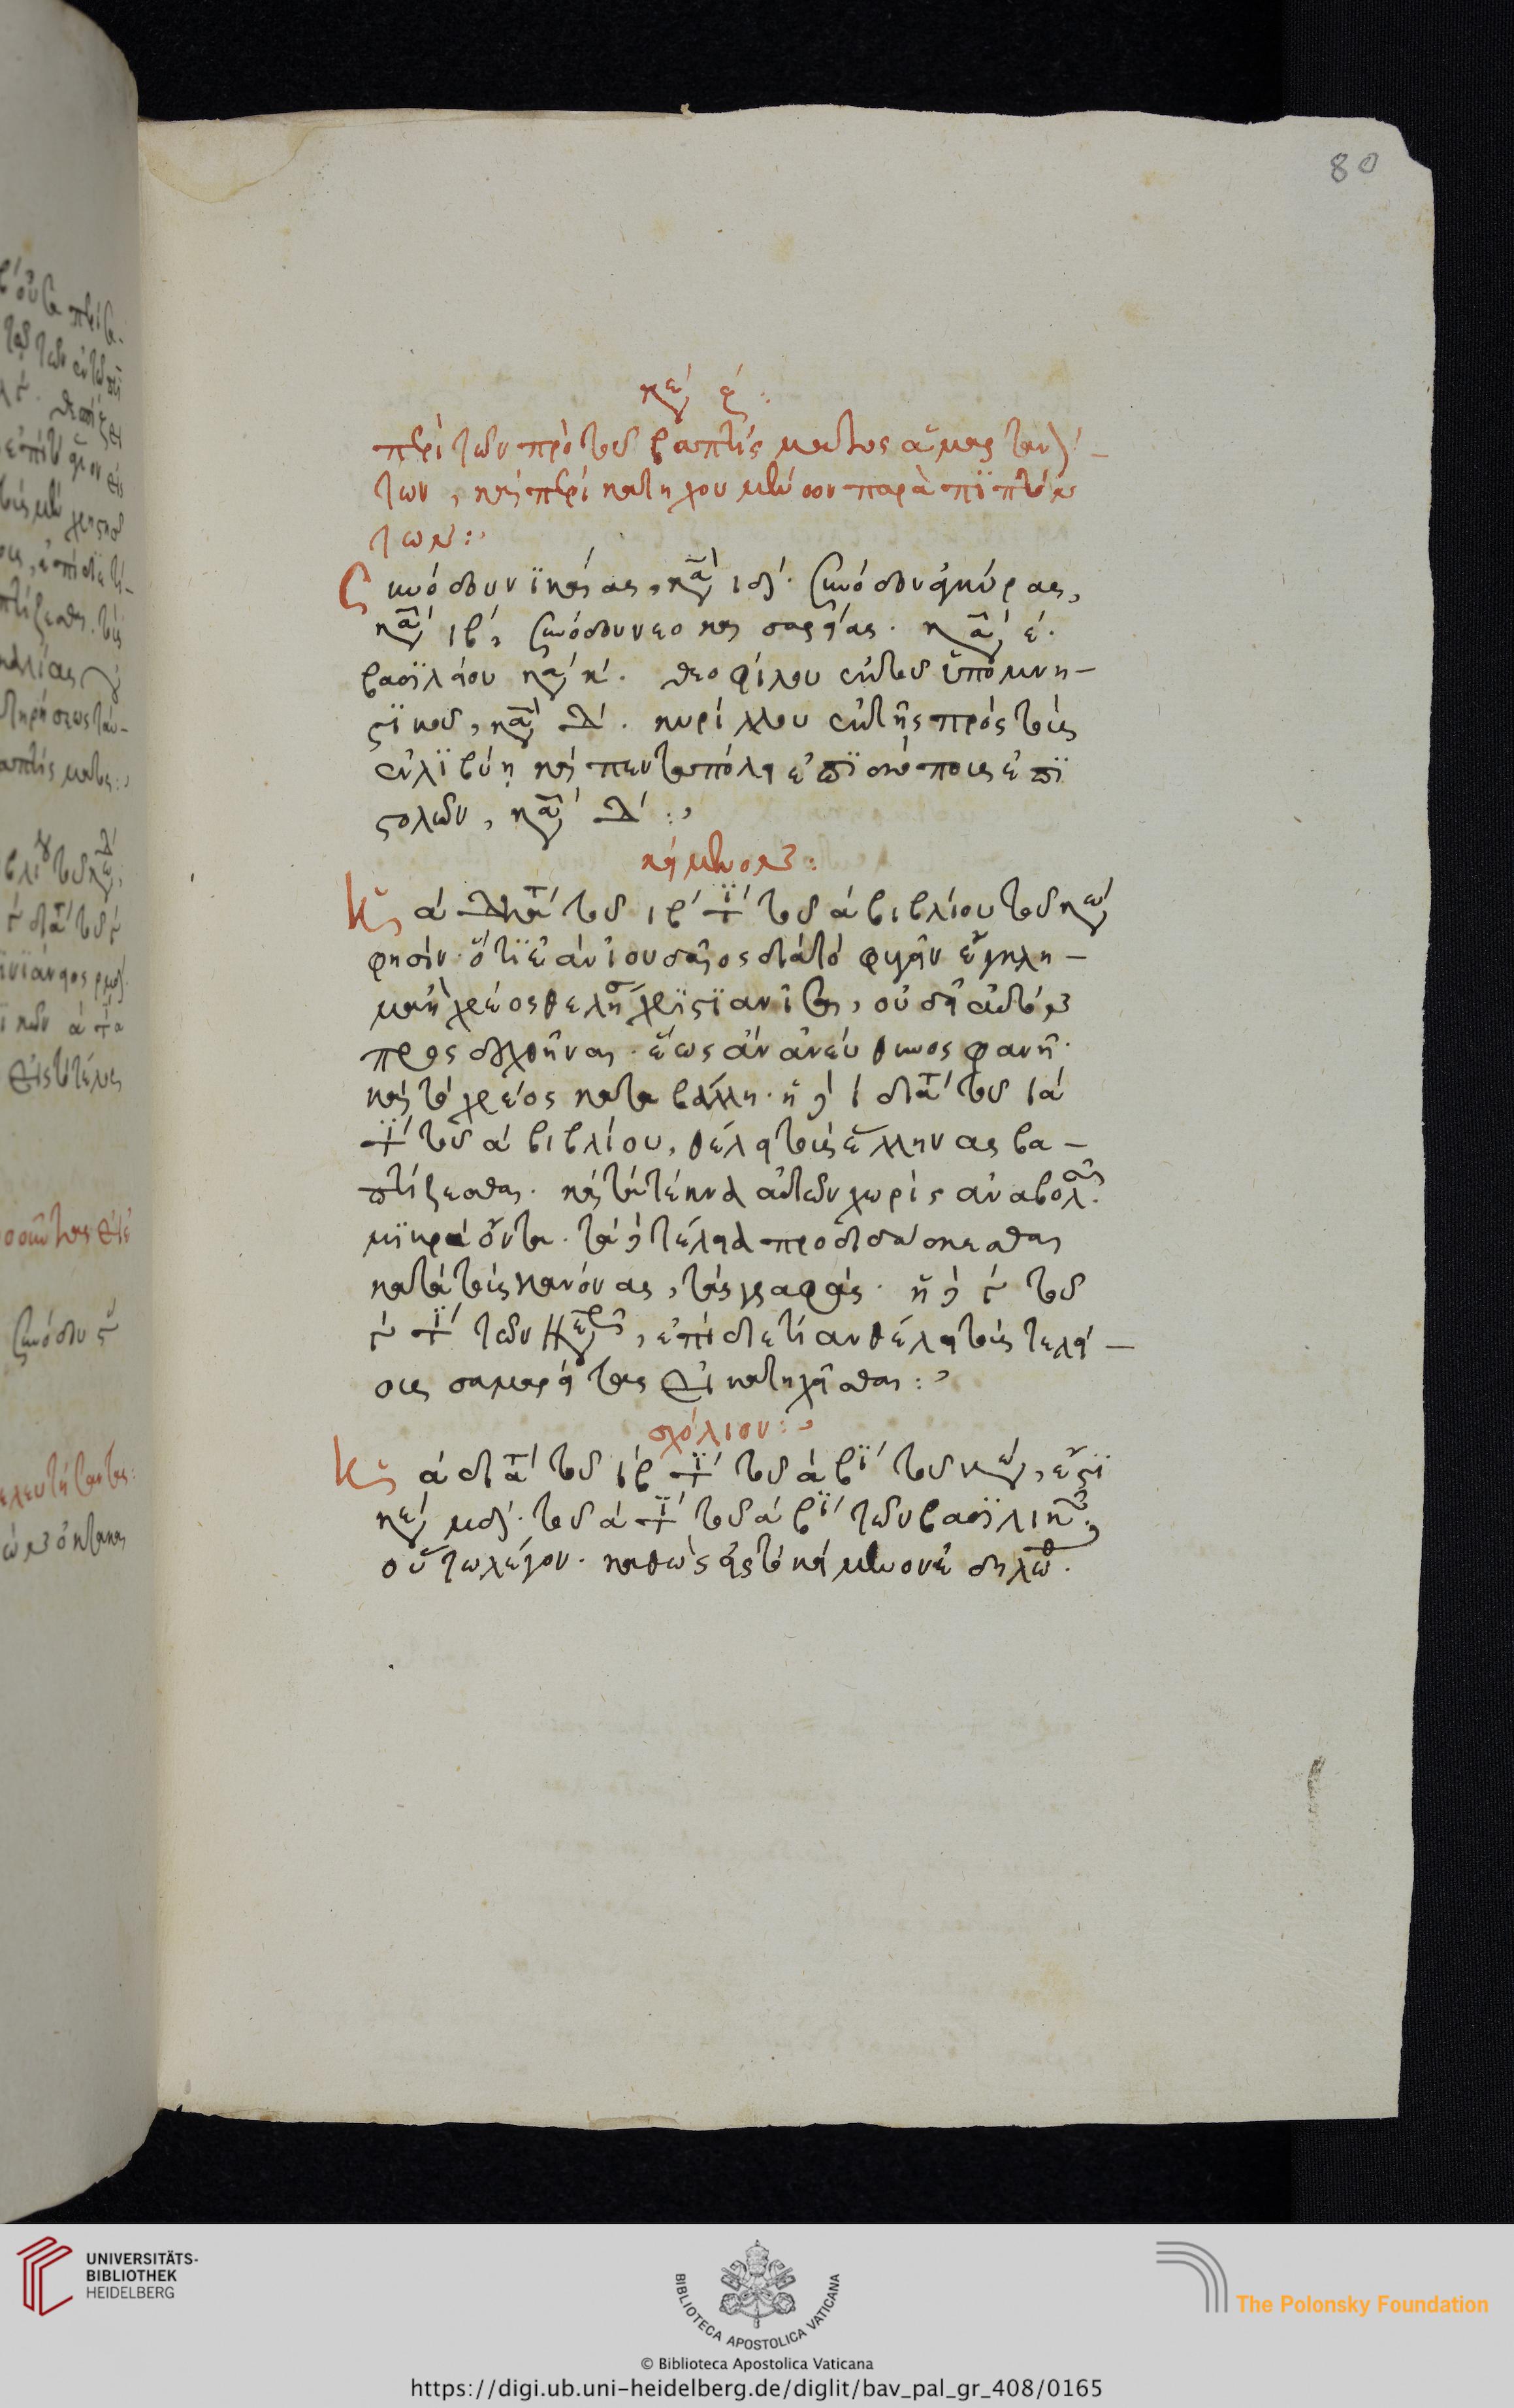 80
κεφ ε:
περὶ τῶν πρὸ τοῦ βαπτίσματος ἁμαρταν-
των, καὶ περὶ κατηχουμένων παραπιπτόν
των:
Συνόδου νικαίας, κα ιδ. συνόδου ἀγκύρας,
κα ιβ, συνόδου νεοκαισαρείας. κα ε.
βασιλείου κα κ. θεοφίλου ἐκ τοῦ ὑπομνη-
στικοῦ, κα δ. κυρίλλου ἐκ τῆς πρὸς τοὺς
ἐν λιβύῃ καὶ πενταπόλει ἐπισκόπους ἐπι
στολῶν, κα δ:
κείμενον:
Η α διατ τοῦ ιβ τι τοῦ α βιβλίου τοῦ κω
φησίν· ὅτι ἐὰν ἰουδαῖος διὰ τὸ φυγεῖν ἔγκλη-
μα ἢ χρέος θελήσῃ χριστιανίσαι, οὐ δεῖ αὐτὸν
προσδεχθῆναι· ἕως ἂν ἀνεύθυνος φανῇ·
καὶ τὸ χρέος καταβάλλῃ· ἡ δὲ ι διατ τοῦ ια
τι τοῦ α βιβλίου, θέλει τοὺς ἕλληνας βα-
πτίζεσθαι· καὶ τὰ τέκνα αὐτῶν χωρὶς ἀναβολῆς·
μικρὰ ὄντα· τὰ δὲ τέλεια προδιδάσκεσθαι
κατὰ τοὺς κανόνας, τὰς γραφάς· ἡ δὲ γ τοῦ
γ τι τῶν νεαρῶν, ἐπὶ διετίαν θέλει τοὺς τελεί-
ους σαμαρείτας κατηχεῖσθαι:
σχόλιον:
Η α διατ τοῦ ιβ τι τοῦ α βι τοῦ κω, ἔστι
κεφ μδ τοῦ α τι τοῦ α βι τῶν βασιλικῶν·
οὕτω λέγον· καθὼς εἰς τὸ κείμενον ἐδηλώθη.
UNIVERSITÄTS-
BIBLIOTHEK
HEIDELBERG
BIBLIOTECA APOSTOLICA VATICANA
The Polonsky Foundation
© Biblioteca Apostolica Vaticana
https://digi.ub.uni-heidelberg.de/diglit/bav_pal_gr_408/0165